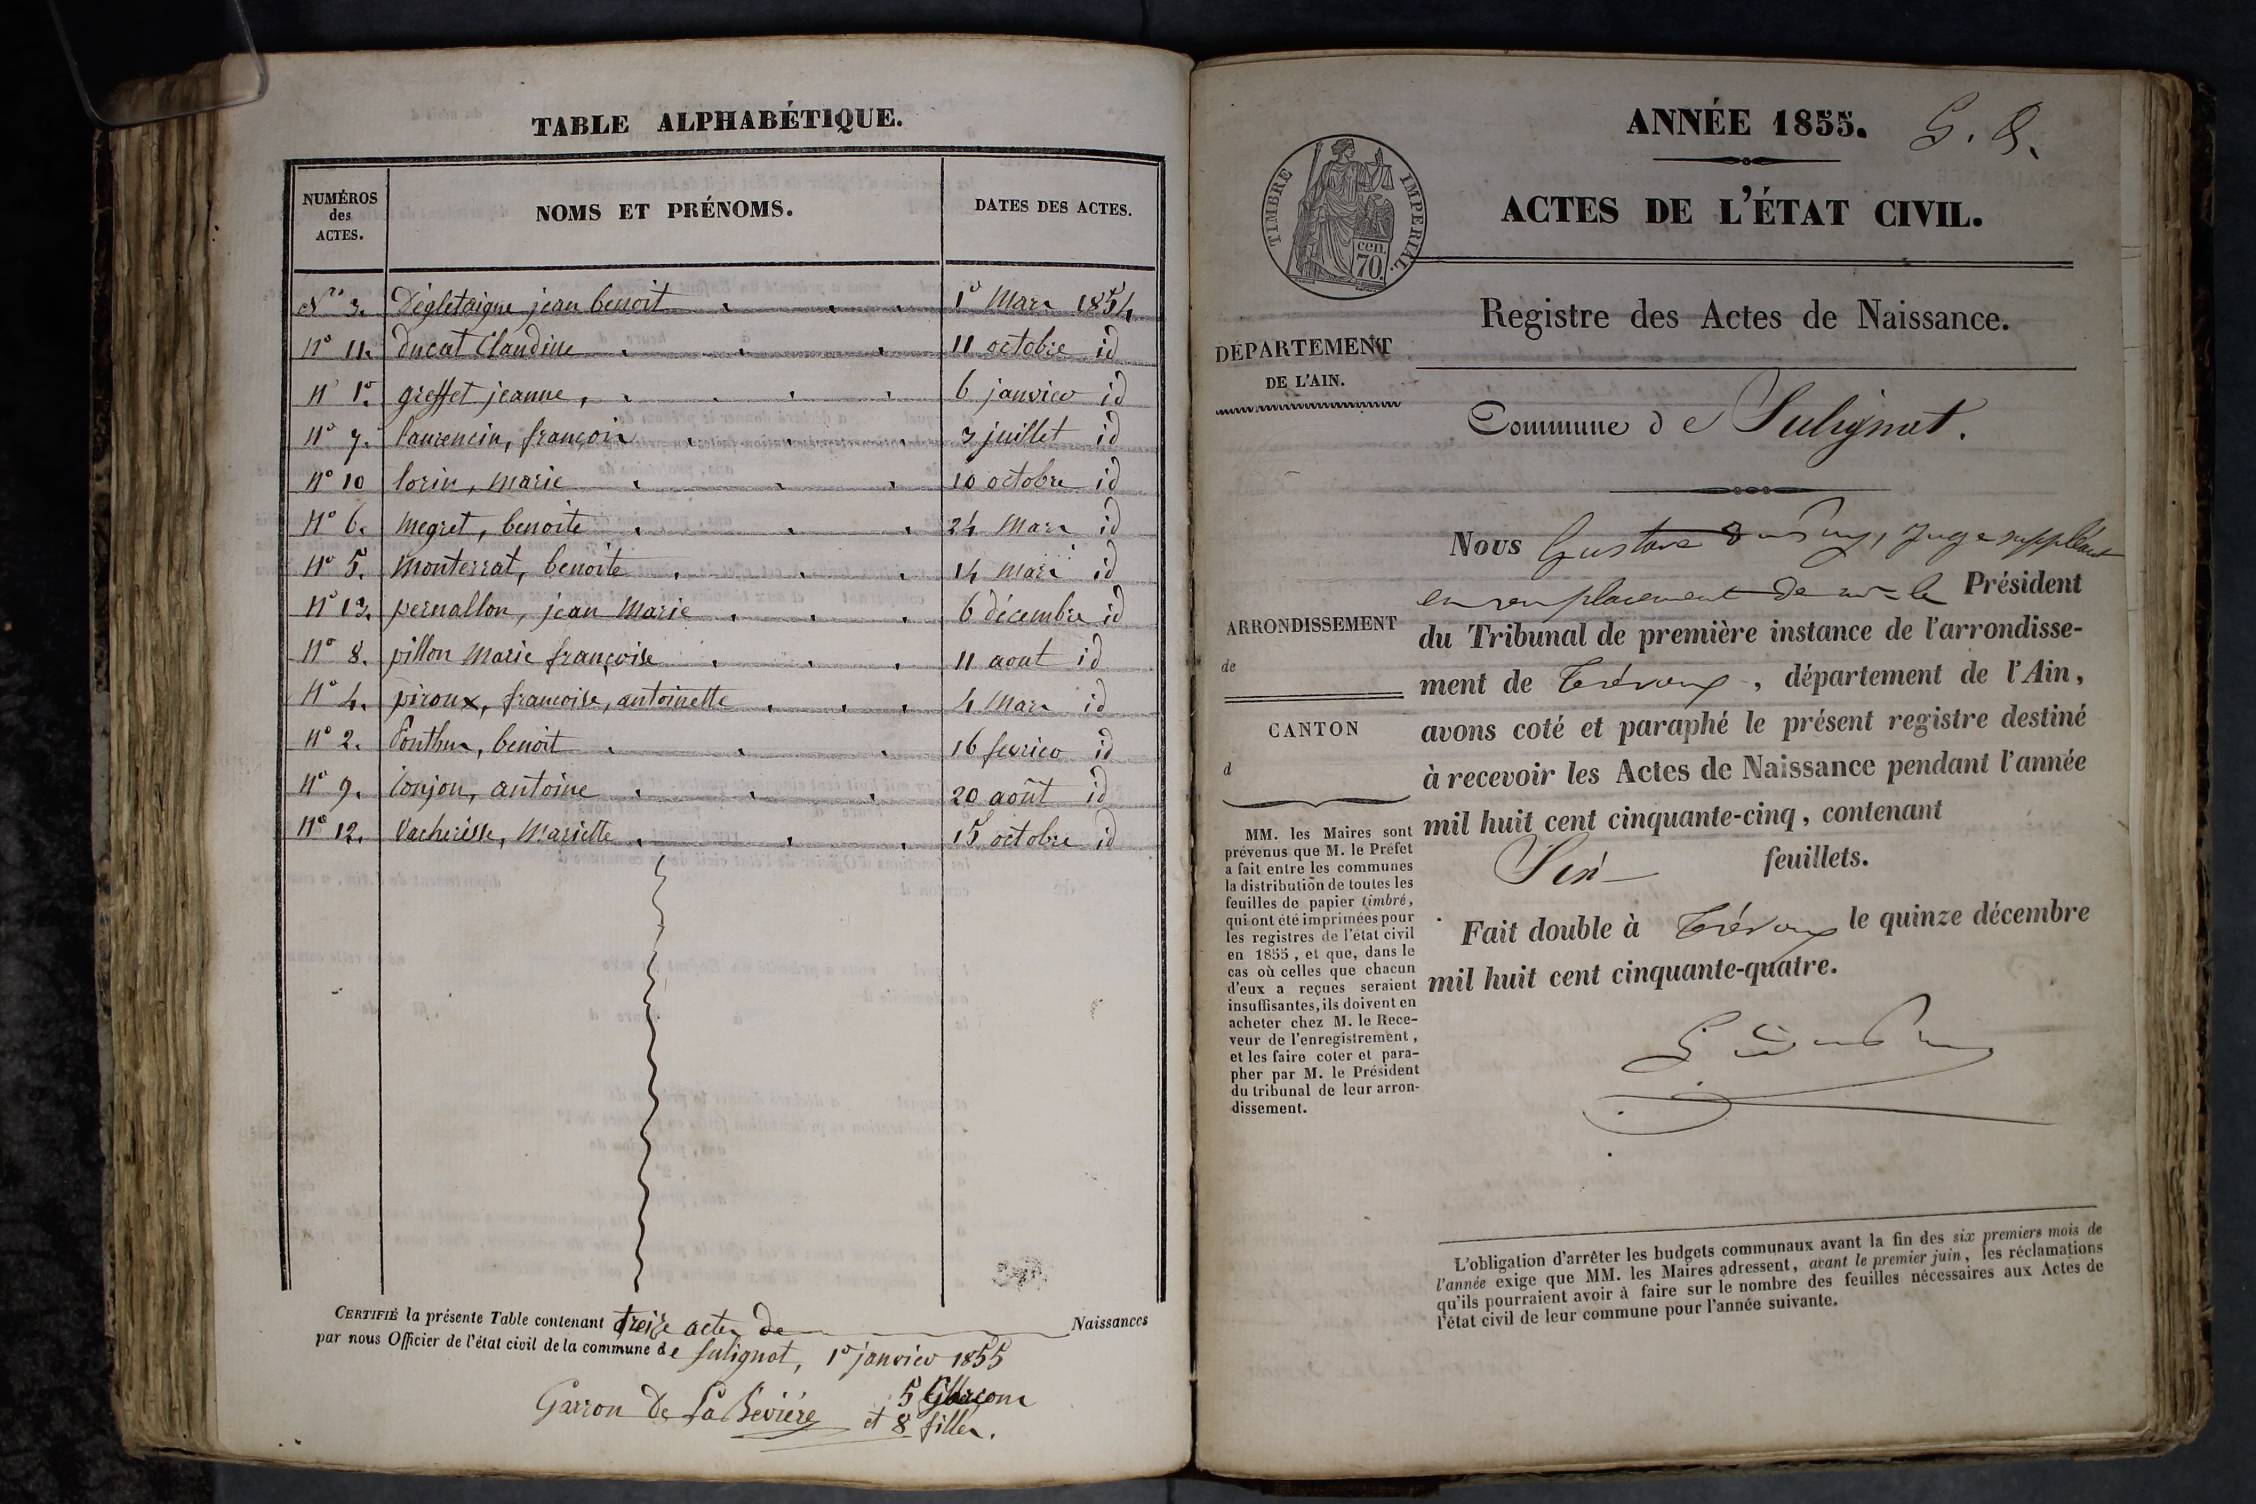 TABLE ALPHABÉTIQUE.
NUMÉROS des ACTES. NOMS ET PRÉNOMS. DATES DES ACTES.
No 3. Dégletaigne jean benoit 1o Mars 1854
No 11. ducat Claudine 11 octobre id
No 1o. greffet jeanne, 6 janvier id
No 7. laurencin, françois 3 juillet id
No 10 lorin, marie 10 octobre id
No 6. megret, benoite 24 Mars id
No 5. Monterrat, benoite 14 mars id
No 13. pernallon, jean Marie 6 décembre id
No 8. pillon Marie françoise 11 aout id
No 4. piroux, francoise, antoinette 4 Mars id
No 2. Ponthus, benoit 16 fevrier id
No 9. Tonjon, antoine 20 août id
No 12. Vacheresse, Mariette 15 octobre id
CERTIFIÉ la présente Table contenant treize actes de Naissances
par nous Officier de l'état civil de la commune de Sulignat, 1o janvier 1855
5 Garçons
Garron De La Bévière et 8 filles.
ANNÉE 1855. G. D.
ACTES DE L'ÉTAT CIVIL.
TIMBRE IMPERIAL.
cen. 70.
Registre des Actes de Naissance.
DÉPARTEMENT
DE L'AIN.
Commune de Sulignat.
Nous Gustave, Juge suppléant
en remplacement de mr le Président
du Tribunal de première instance de l'arrondisse-
ment de Trévoux, département de l'Ain,
avons coté et paraphé le présent registre destiné
à recevoir les Actes de Naissance pendant l'année
mil huit cent cinquante-cinq, contenant
Six feuillets.
Fait double à Trévoux le quinze décembre
mil huit cent cinquante-quatre.
ARRONDISSEMENT
de
CANTON
d
MM. les Maires sont
prévenus que M. le Préfet
a fait entre les communes
la distribution de toutes les
feuilles de papier timbré,
qui ont été imprimées pour
les registres de l'état civil
en 1855, et que, dans le
cas où celles que chacun
d'eux a reçues seraient
insuffisantes, ils doivent en
acheter chez M. le Rece-
veur de l'enregistrement,
et les faire coter et para-
pher par M. le Président
du tribunal de leur arron-
dissement.
L'obligation d'arrêter les budgets communaux avant la fin des six premiers mois de
l'année exige que MM. les Maires adressent, avant le premier juin, les réclamations
qu'ils pourraient avoir à faire sur le nombre des feuilles nécessaires aux Actes de
l'état civil de leur commune pour l'année suivante.